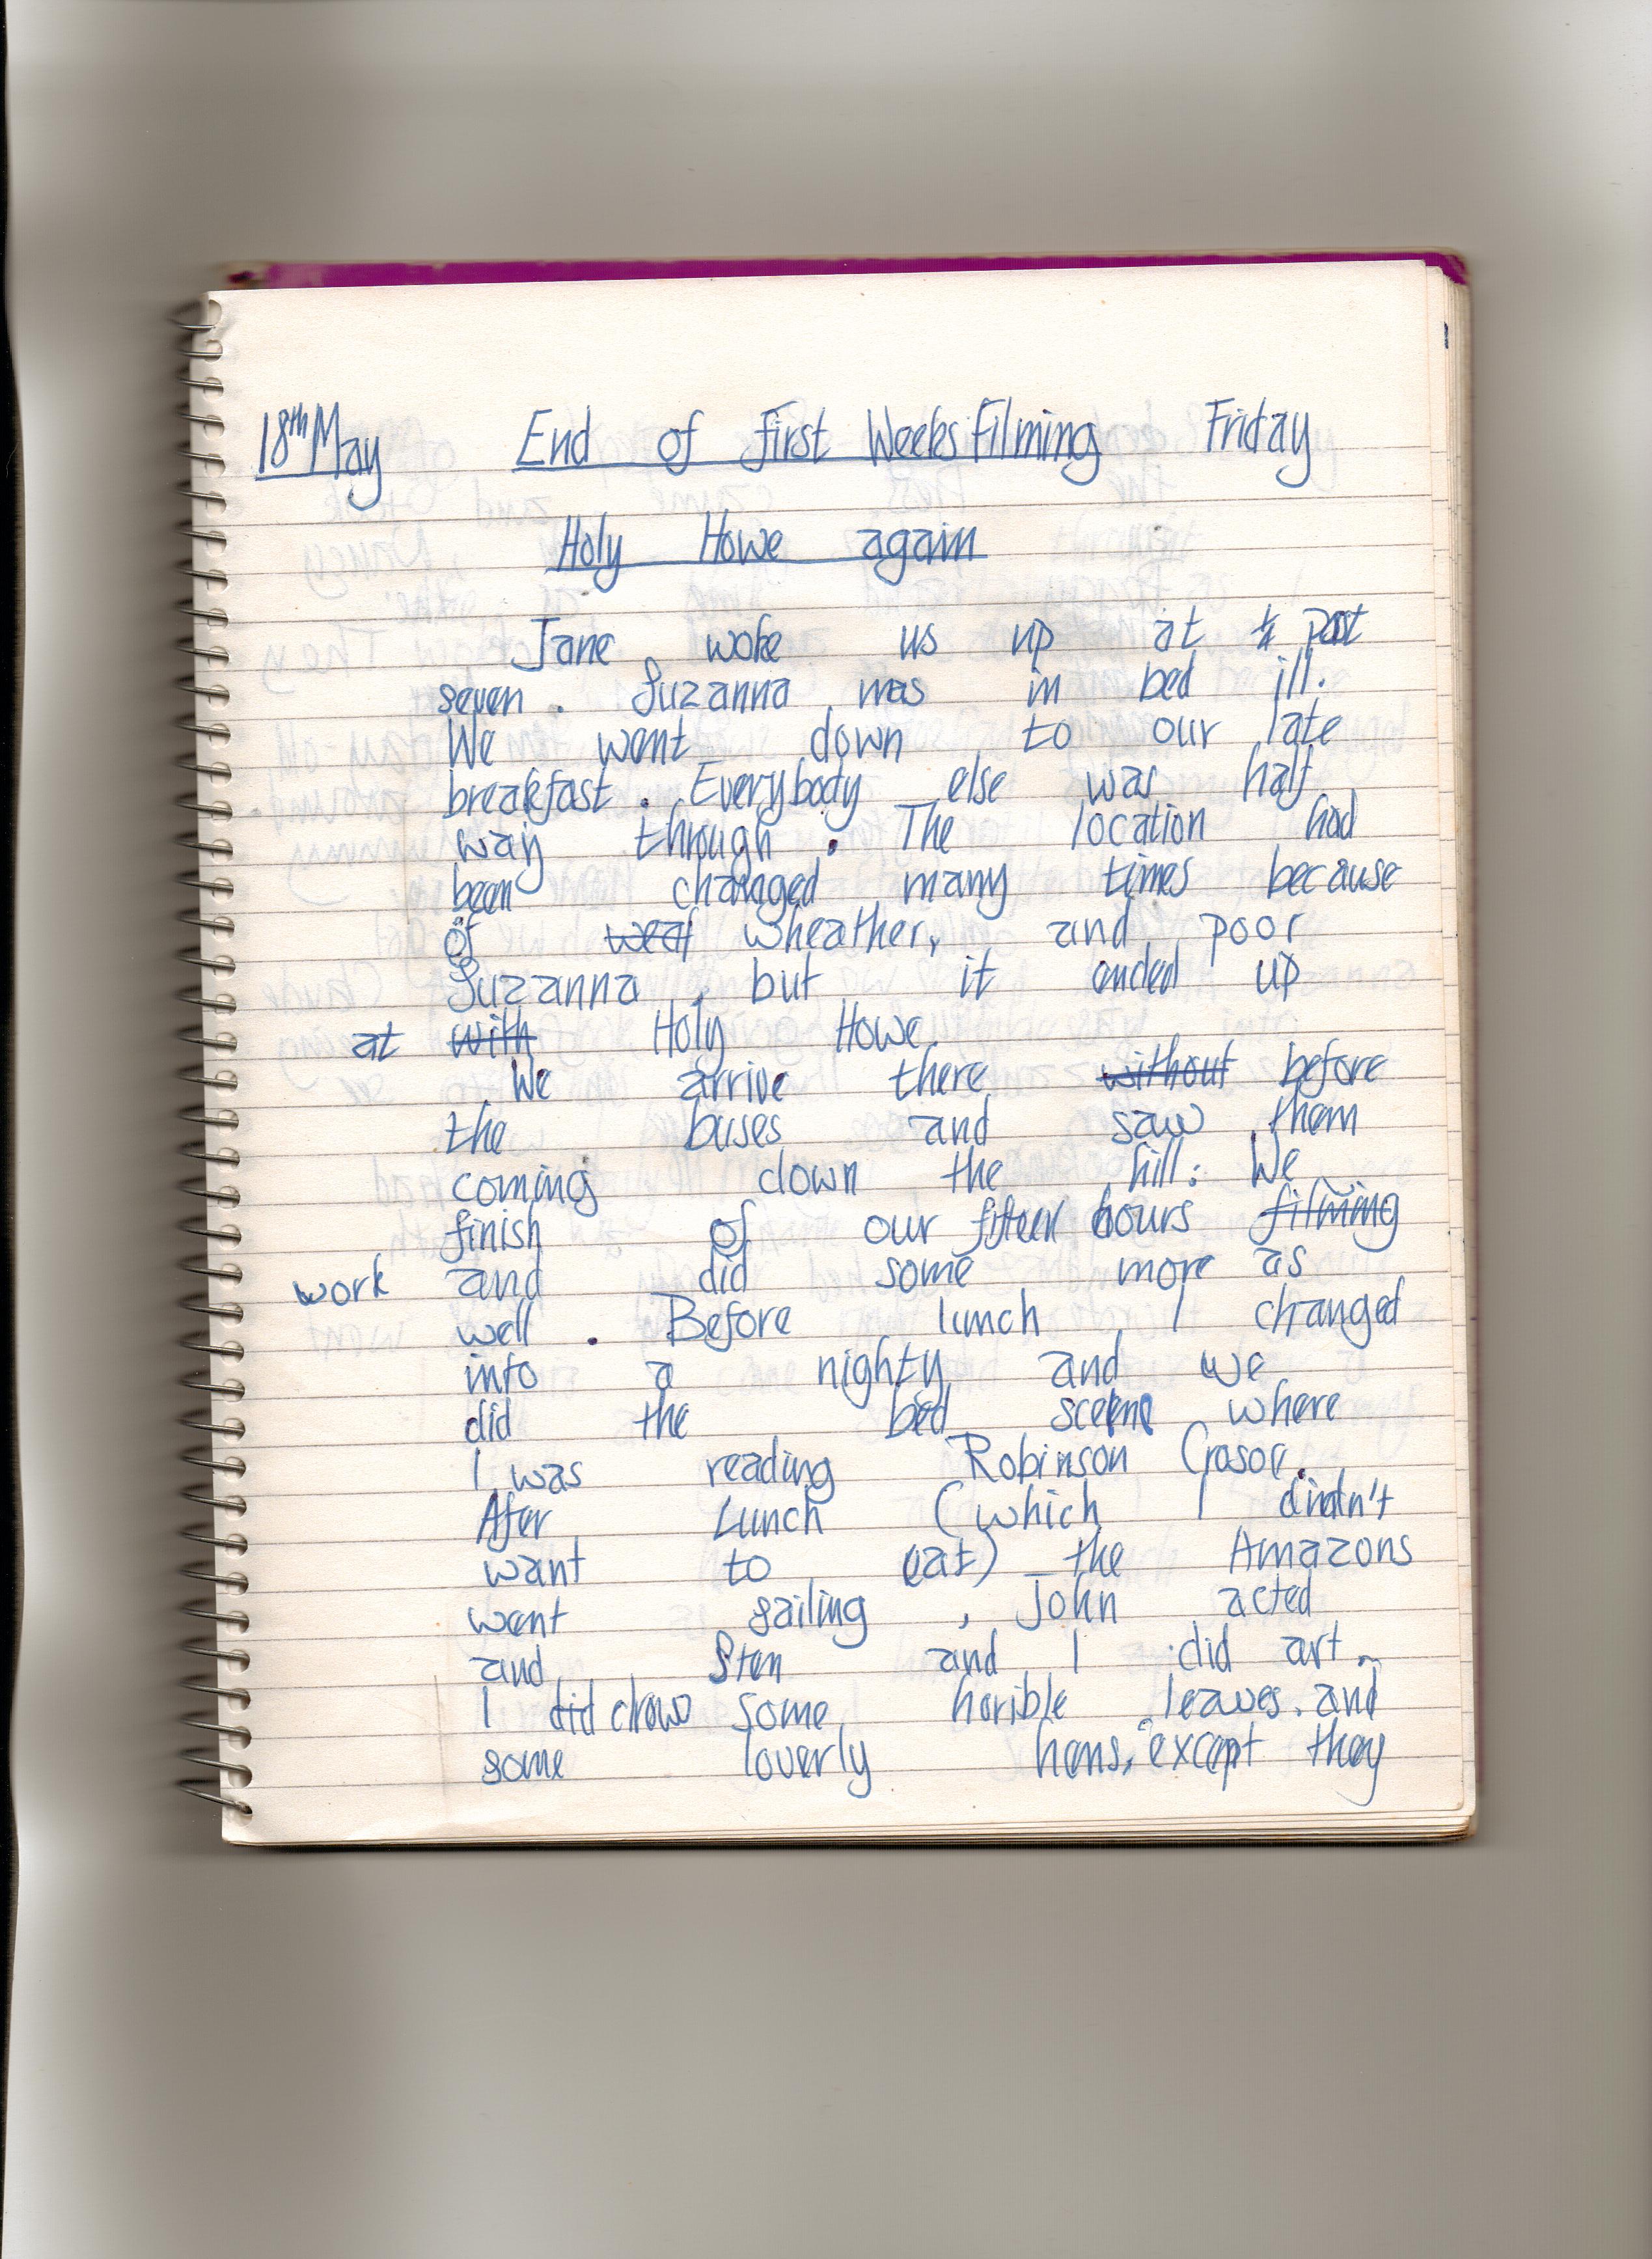 18th May End of first Weeks Filming Friday
Holy Howe again
Jane woke us up at ¼ past
seven. Suzanna was in bed ill.
We went down to our late
breakfast. Everybody else was half
way through. The location had
been changed many times because
of weat wheather, and poor
Suzanna, but it ended up
at with Holy Howe.
We arrive there without before
the buses and saw them
coming down the hill: We
finish of our fifteen hours filming
work and did some more as
well. Before lunch I changed
into a nighty and we
did the bed scene where
I was reading Robinson Crasoe.
Afer Lunch (which I didn't
want to eat) the Amazons
went sailing, John acted
and Sten and I did art.
I did drow some horible leaves. and
some loverly hens, except they